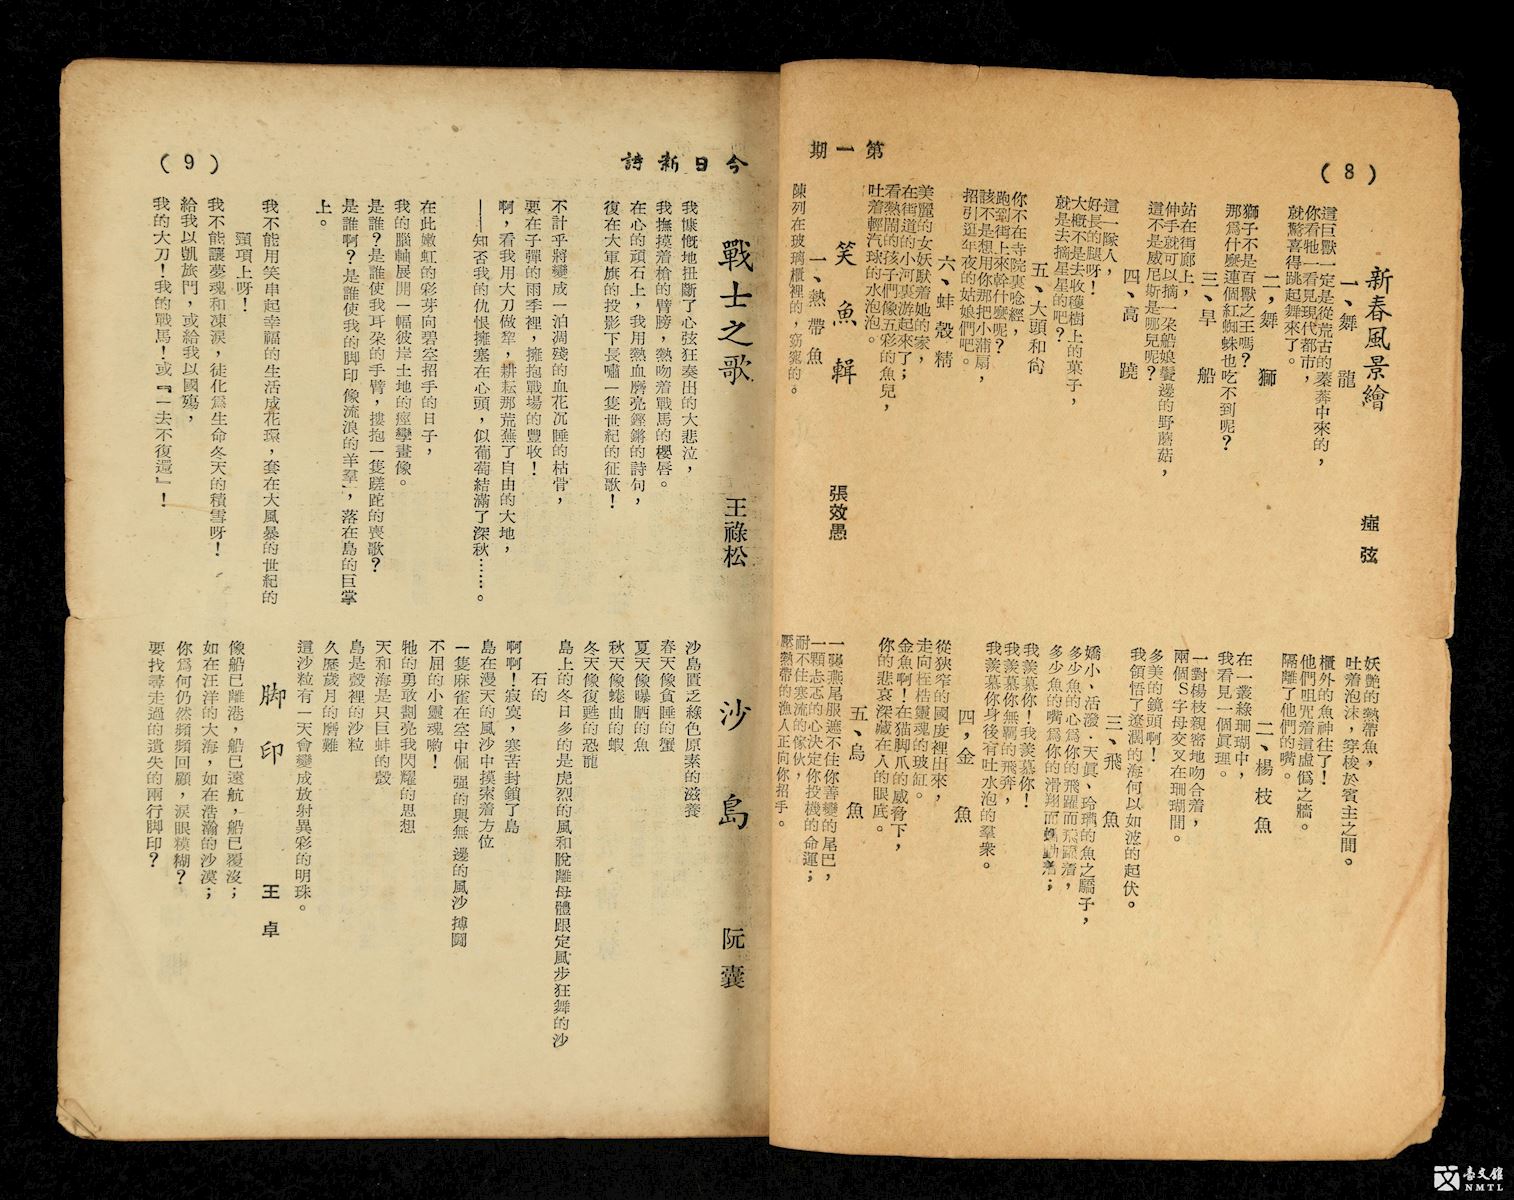 (8)
第一期
新春風景繪
瘂弦
一、舞龍
這巨獸一定是從荒古的蓁莽中來的，
你看牠一看見現代都市，
就驚喜得跳起舞來了。
二，舞獅
獅子不是百獸之王嗎？
那爲什麼連個紅蜘蛛也吃不到呢？
三、旱船
站在街廊上，
伸手就可以摘一朵船娘鬢邊的野蘑菇，
這不是威尼斯是哪兒呢？
四、高蹺
這一隊人，
好長的腿呀！
大概不是去收穫樹上的菓子，
就是去摘星星的吧？
五、大頭和尙
你不在寺院裏唸經，
跑到街上來幹什麼呢？
該不是想用你那把小蒲扇，
招引逛年夜的姑娘們吧。
六、蚌殼精
美麗的女妖馱着她的家，
在街道的小河裏游起來了；
看熱鬧的孩子們像五彩的魚兒，
吐着輕汽球的水泡泡。
笑魚輯
張效愚
一、熱帶魚
陳列在玻璃櫃裡的，窈窕的。
妖艷的熱帶魚，
吐着泡沫，穿梭於賓主之間。
櫃外的魚神往了！
他們咀咒着這虛僞之牆。
隔離了他們的嘴。
二、楊枝魚
在一叢綠珊瑚中，
我看見一個眞理。
一對楊枝親密地吻合着，
兩個S字母交叉在珊瑚間。
多美的鏡頭啊！
我領悟了遼濶的海何以如此的起伏。
三、飛魚
嬌小、活潑、天眞、玲瓏的魚之驕子，
多少魚的心爲你的飛躍而飛躍着，
多少魚的嘴爲你的滑翔而蠕動着；
我羨慕你！我羨慕你！
我羨慕你無羈的飛奔，
我羨慕你身後有吐水泡的羣衆。
四，金魚
從狹窄的國度裡出來，
走向桎梏靈魂的玻缸。
金魚啊！在猫脚爪的威脅下，
你的悲哀深藏在人的眼底。
五、烏魚
一襲燕尾服遮不住你善變的尾巴，
一顆忐忑的心決定你投機的命運；
耐不住寒流的傢伙，
壓熱帶的漁人正向你招手。
今日新詩
(9)
戰士之歌
王祿松
我慷慨地扭斷了心弦狂奏出的大悲泣，
我撫摸着槍的臂膀，熱吻着戰馬的櫻唇。
在心的頑石上，我用熱血磨亮鏗鏘的詩句，
復在大軍旗的投影下長嘯一隻世紀的征歌！
不計乎將變成一泊凋殘的血花沉睡的枯骨，
要在子彈的雨季裡，擁抱戰場的豐收！
啊，看我用大刀做犂，耕耘那荒蕪了自由的大地，
——知否我的仇恨擁塞在心頭，似葡萄結滿了深秋……。
在此嫩虹的彩芽向碧空招手的日子，
我的腦軸展開一幅彼岸土地的痙攣畫像。
是誰？是誰使我耳朶的手臂，摟抱一隻蹉跎的喪歌？
是誰啊？是誰使我的脚印像流浪的羊羣，落在島的巨掌
上。
我不能用笑串起幸福的生活成花環，套在大風暴的世紀的
頸項上呀！
我不能讓夢魂和凍淚，徒化爲生命冬天的積雪呀！
給我以凱旅門，或給我以國殤，
我的大刀！我的戰馬！或『一去不復還』！
沙島
阮囊
沙島匱乏綠色原素的滋養
春天像貪睡的蟹
夏天像曝晒的魚
秋天像蜷曲的蝦
冬天像復甦的恐龍
島上的冬日多的是虎烈的風和脫離母體跟定風步狂舞的沙
石的
啊啊！寂寞，寒苦封鎖了島
島在漫天的風沙中摸索着方位
一隻麻雀在空中倔强的與無邊的風沙搏鬪
不屈的小靈魂喲！
牠的勇敢劃亮我閃耀的思想
天和海是只巨蚌的殼
島是殼裡的沙粒
久歷歲月的磨難
這沙粒有一天會變成放射異彩的明珠。
脚印
王卓
像船已離港，船已遠航，船已覆沒；
如在汪洋的大海，如在浩瀚的沙漠；
你爲何仍然頻頻回顧，淚眼糢糊？
要找尋走過的遺失的兩行脚印？
臺文館
NMTL